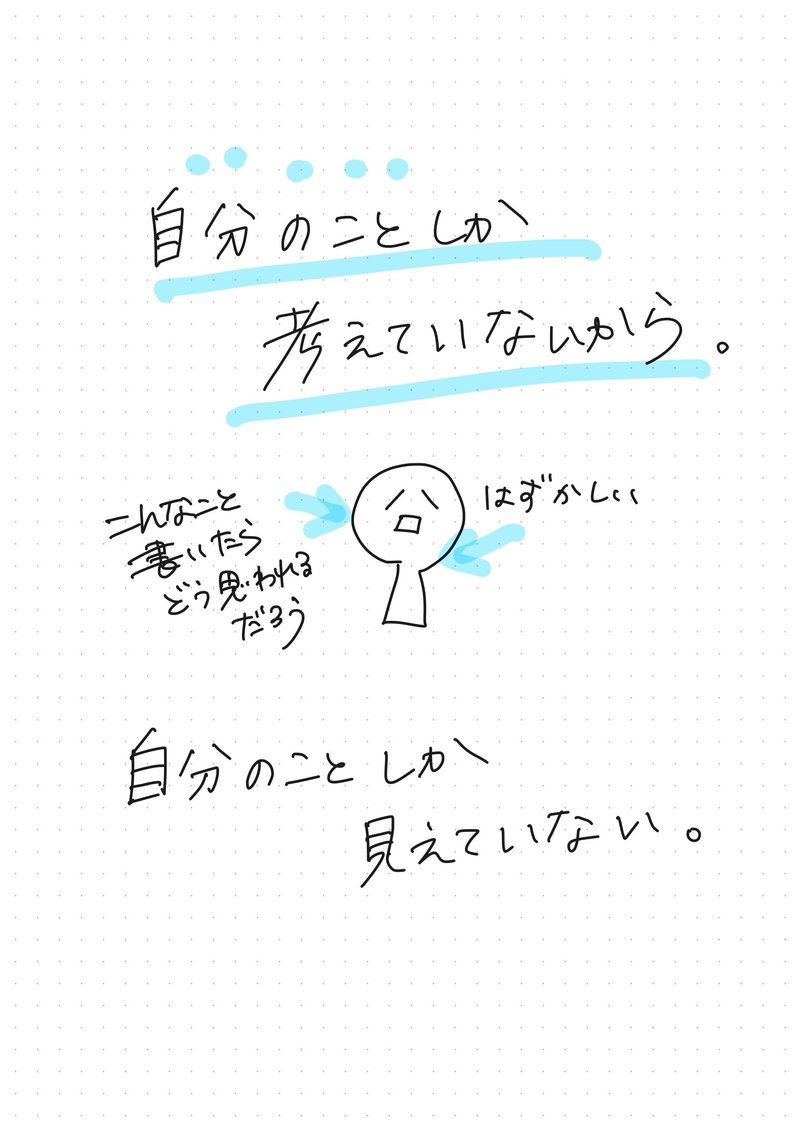 自分のことしか
考えていないから。
こんなこと
書いたら
どう思われる
だろう
はずかしい
自分のことしか
見えていない。